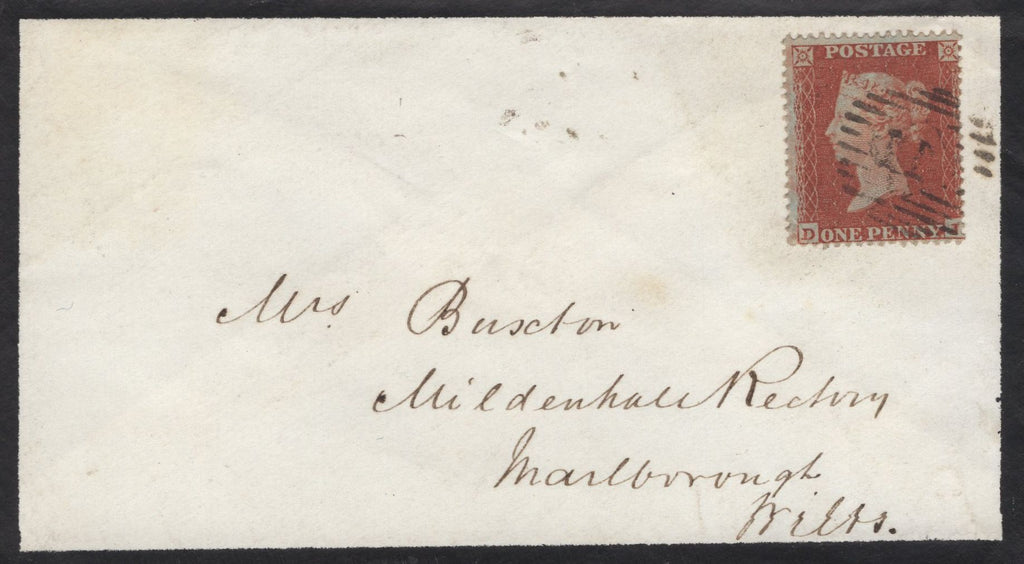 POSTAGE
D ONE PENNY
Mrs Buxton
Mildenhall Rectory
Marlborough
Wilts.